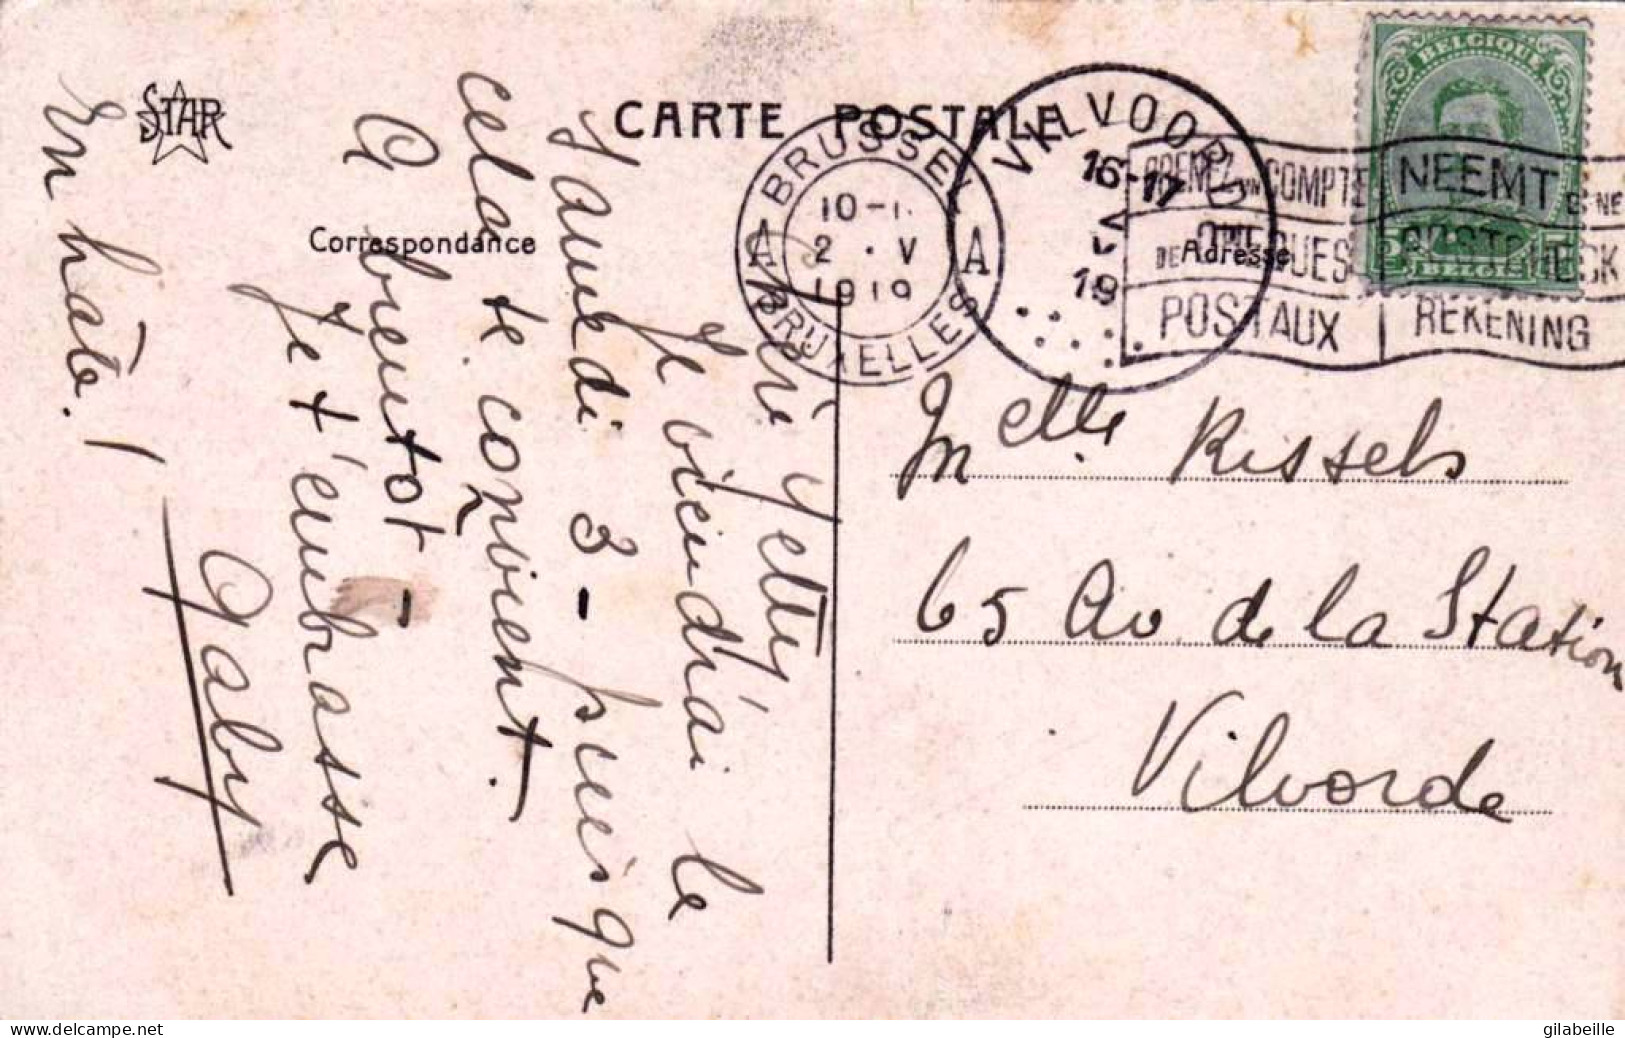 STAR
CARTE POSTALE
Correspondance
Adresse
BRUSSEL
A A
10-1
2 . V
1919
BRUXELLES
VILVOORD
16-17
V
19
PRENEZ UN COMPTE
DE CHEQUES
POSTAUX
NEEMT EENE
POSTCHECK
REKENING
BELGIQUE
BELGIE
Yetty
Je viendrai le
samedi 3 - puisque
cela te convient.
A bientôt -
Je t'embrasse
Gaby
En hâte !
Melle Kissels
65 Av. de la Station
Vilvorde
gilabeille
delcampe.net